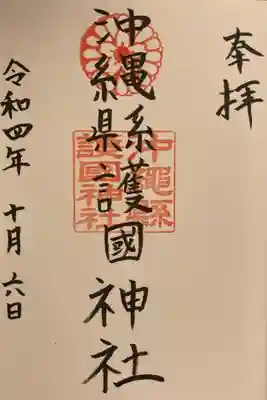 奉拝
沖縄縣護國神社
沖繩縣
護国神社
令和四年 十月六日